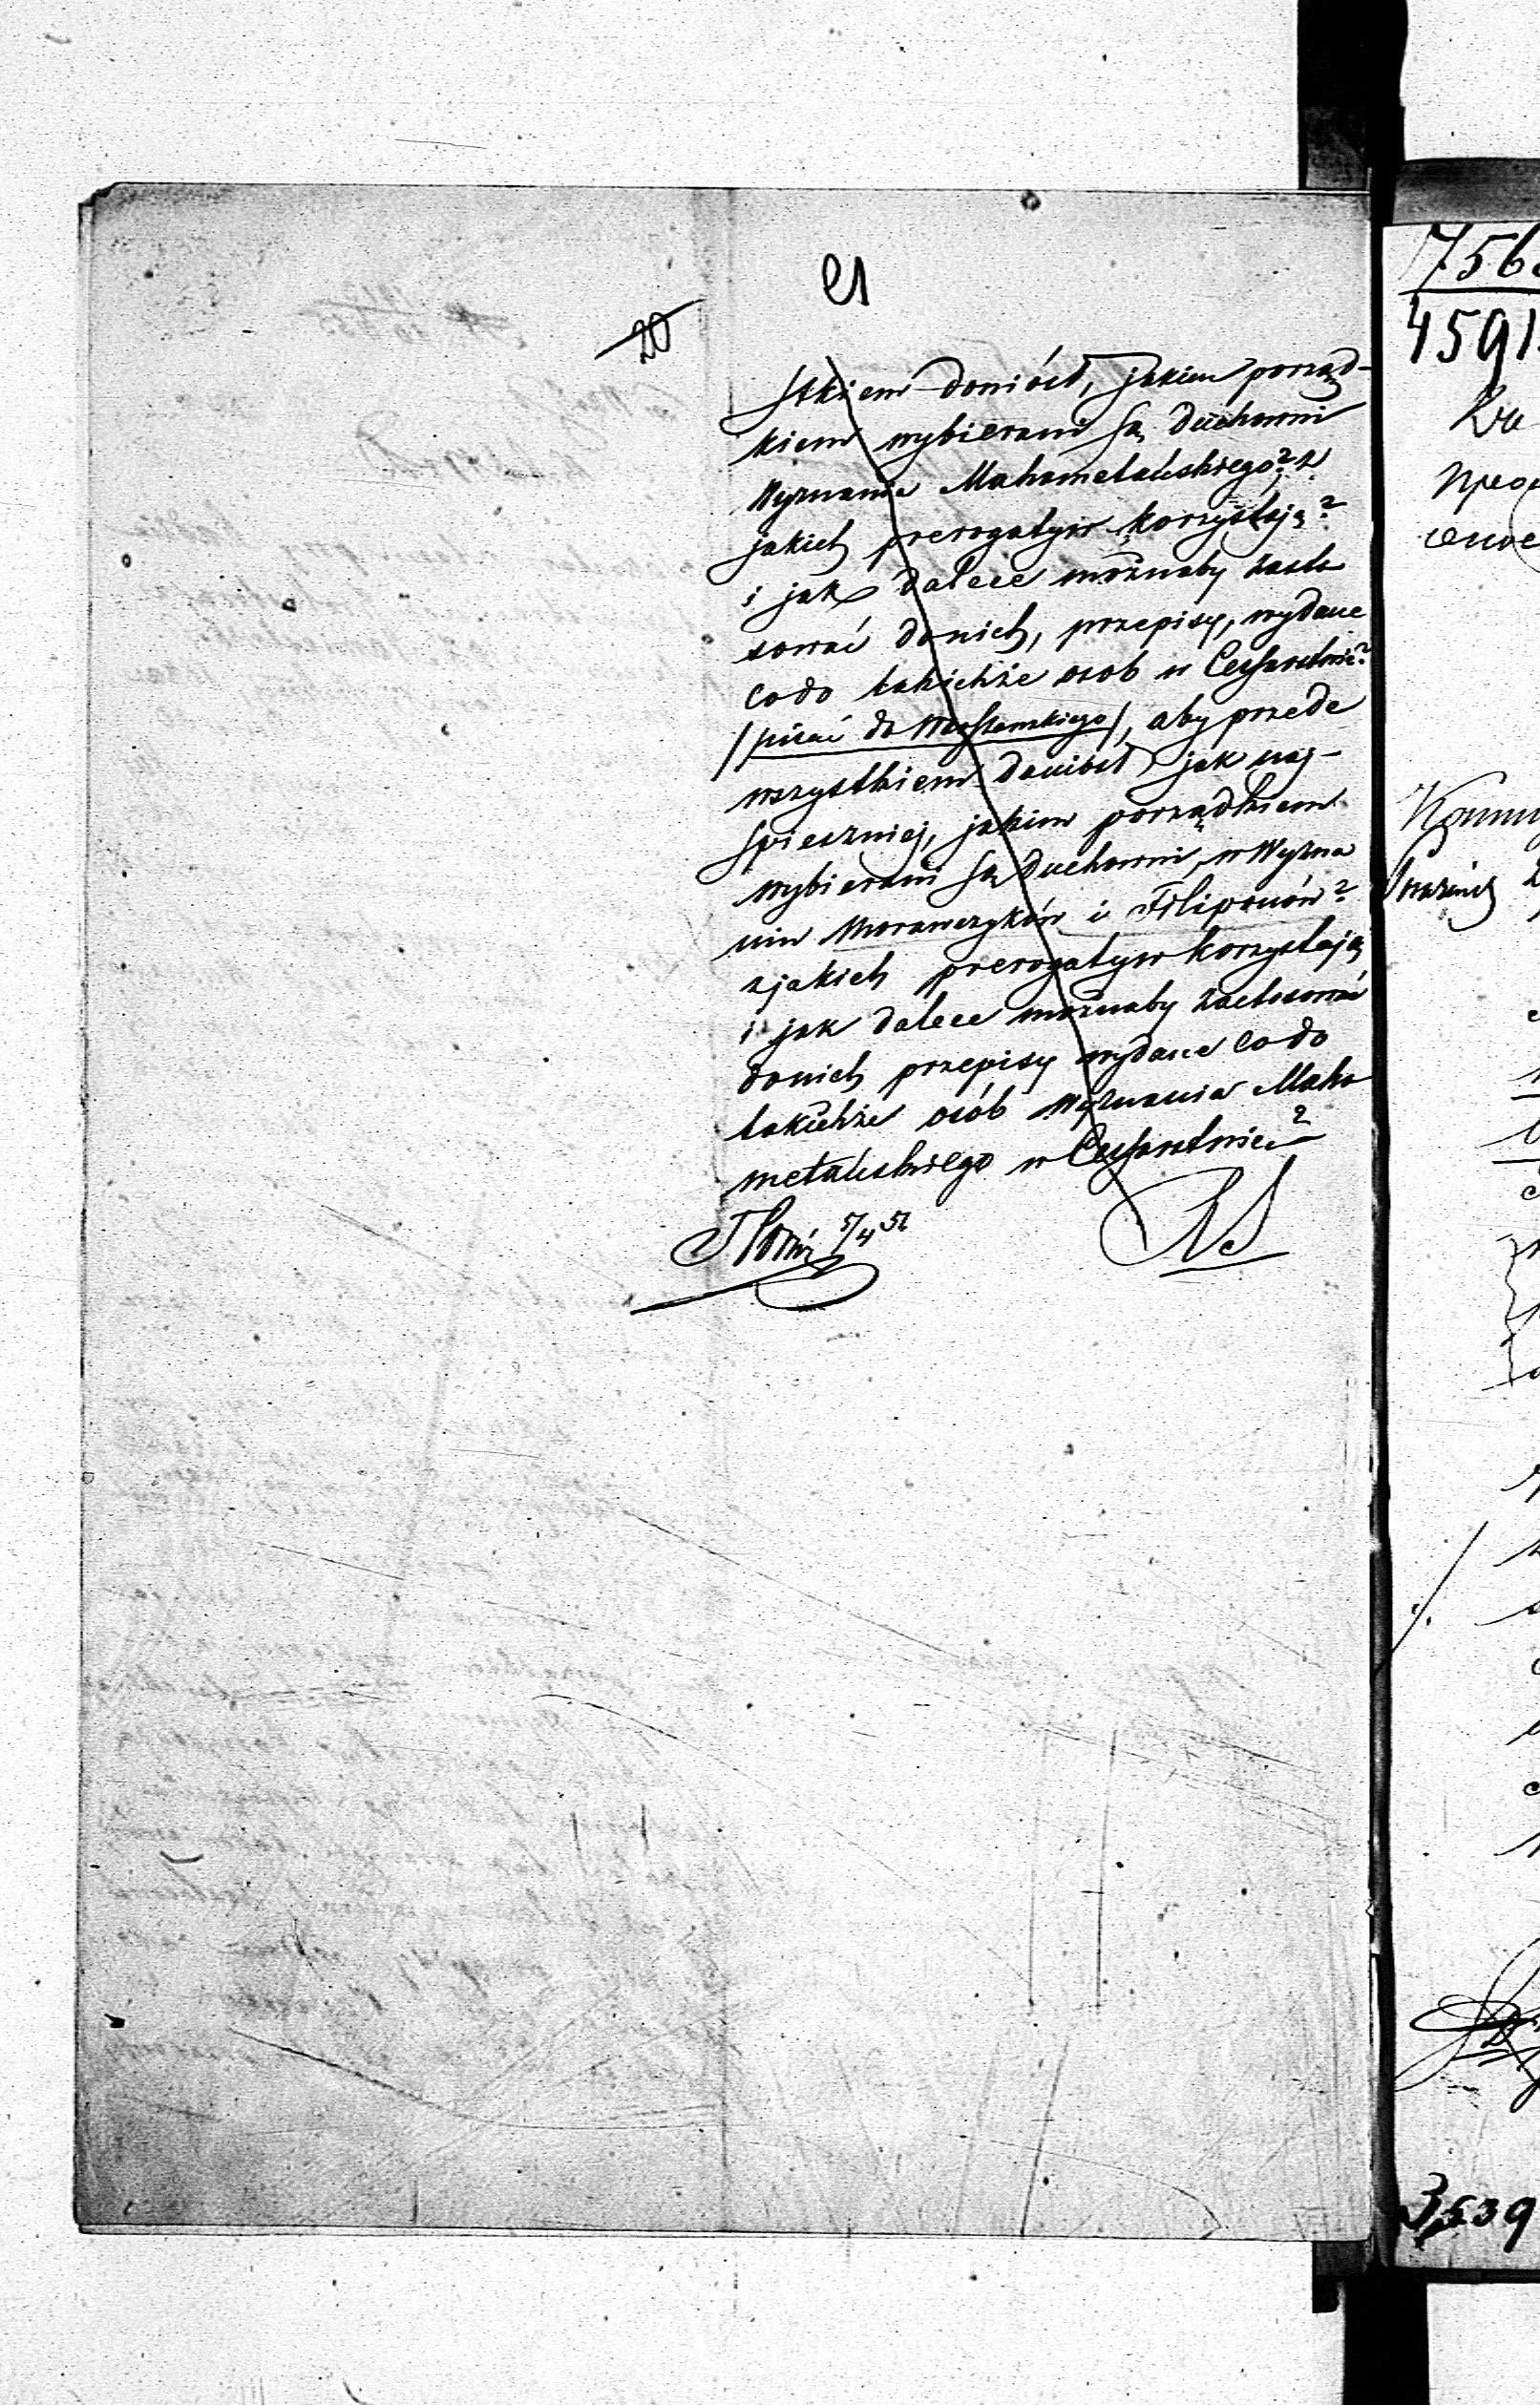 21
20
stkiem doniósł, jakim porząd-
kiem wybierani są duchowni
Wyznania Mahometańskiego? z
jakich prerogatyw korzystają?
i jak dalece możnaby zasto
sować do nich, przepisy, wydane
co do takichże osob w Cesarstwie?
/pisać do /, aby przede
wszystkiem doniósł jak naj-
spieszniej, jakim porządkiem
wybierani są duchowni, w Wyzna
niu Morawczyków i Filiponów?
z jakich prerogatyw korzystają
i jak dalece możnaby zastosować
do nich przepisy wydane co do
takichże osób Wyznania Maho
metańskiego w Cesarstwie?
5/4
4591
3539